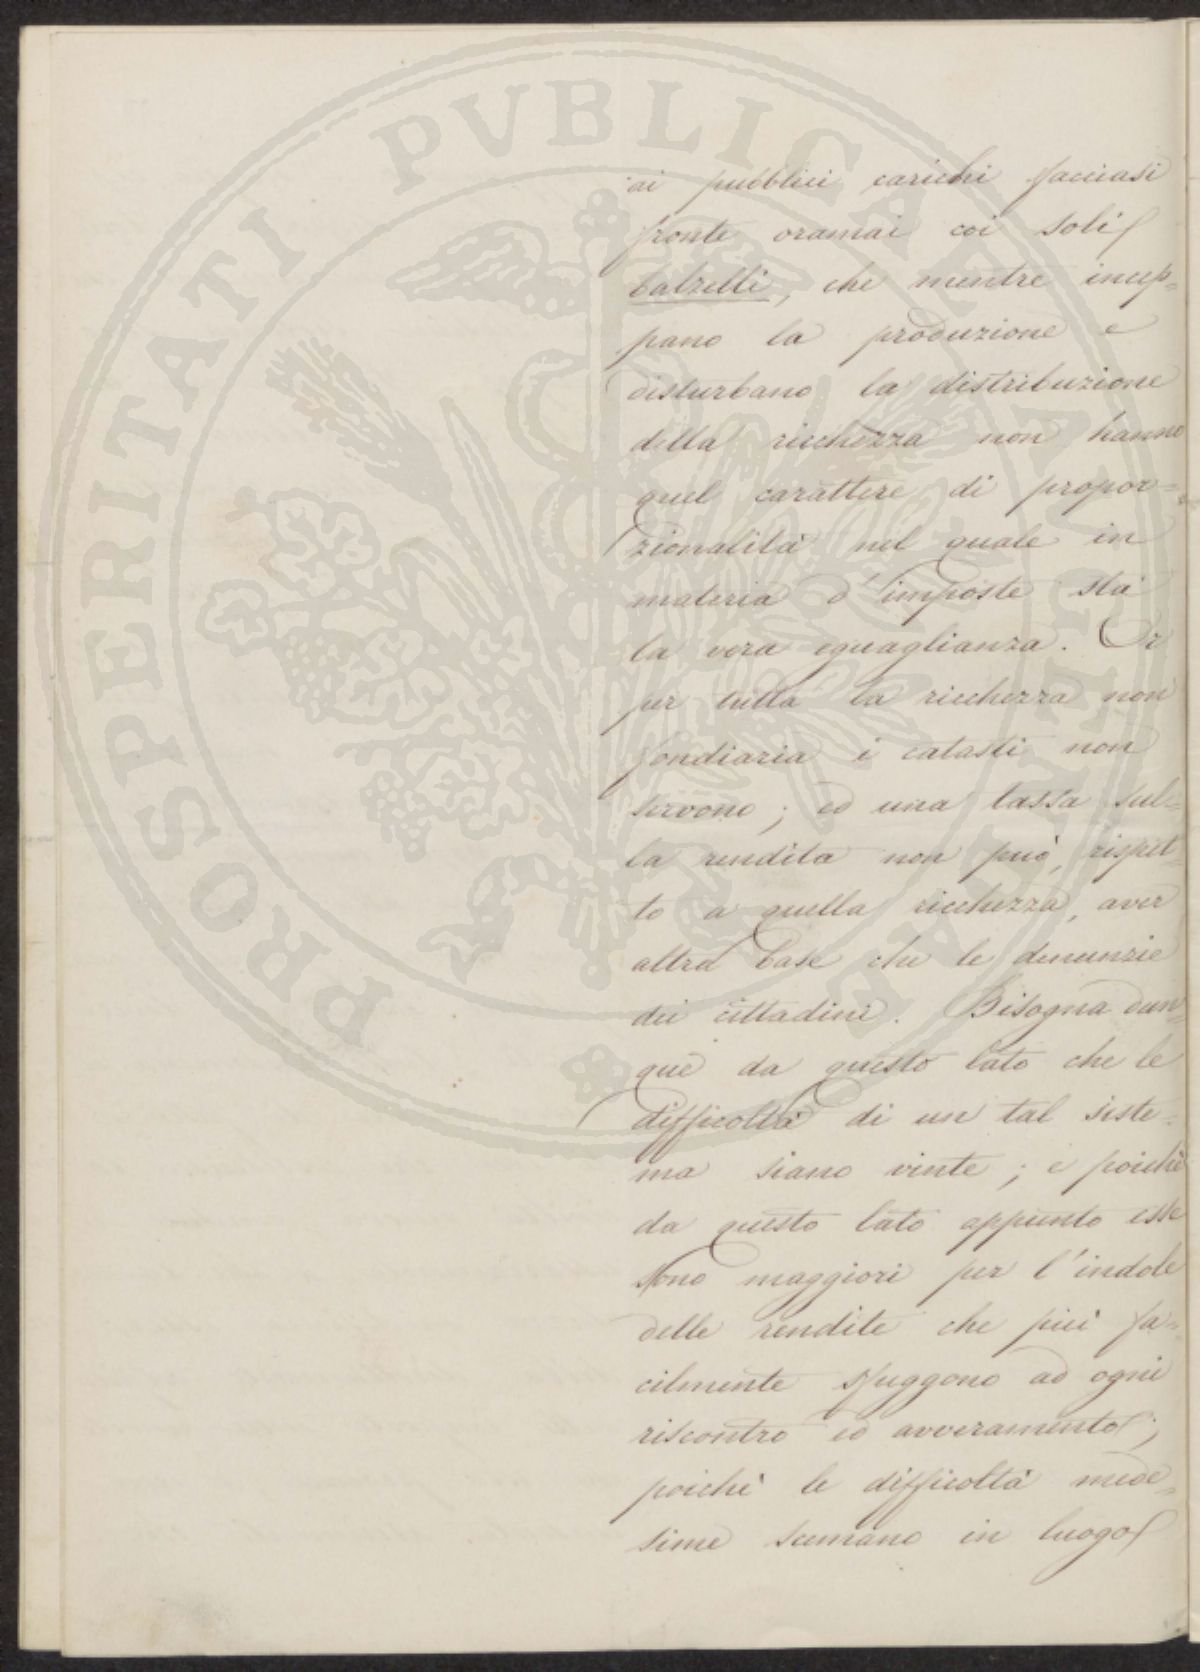 ai pubblici carichi facciasi
fronte oramai coi soli
balzelli, che mentre incep=
pano la produzione e
disturbano la distribuzione
della ricchezza non hanno
quel carattere di propor=
zionalità nel quale in
materia d'imposte sta
la vera eguaglianza. Or
per tutta la ricchezza non
fondiaria i catasti non
servono; ed una tassa sul=
la rendita non può, rispet=
to a quella ricchezza, aver
altra base che le denunzie
dei cittadini. Bisogna dun=
que da questo lato che le
difficoltà di un tal siste=
ma siano vinte; e poichè
da questo lato appunto esse
sono maggiori per l'indole
delle rendite che più fa=
cilmente sfuggono ad ogni
riscontro ed avveramento;
poichè le difficoltà mede=
sime scemano in luogo
PROSPERITATI PVBLICAE AVGENDAE